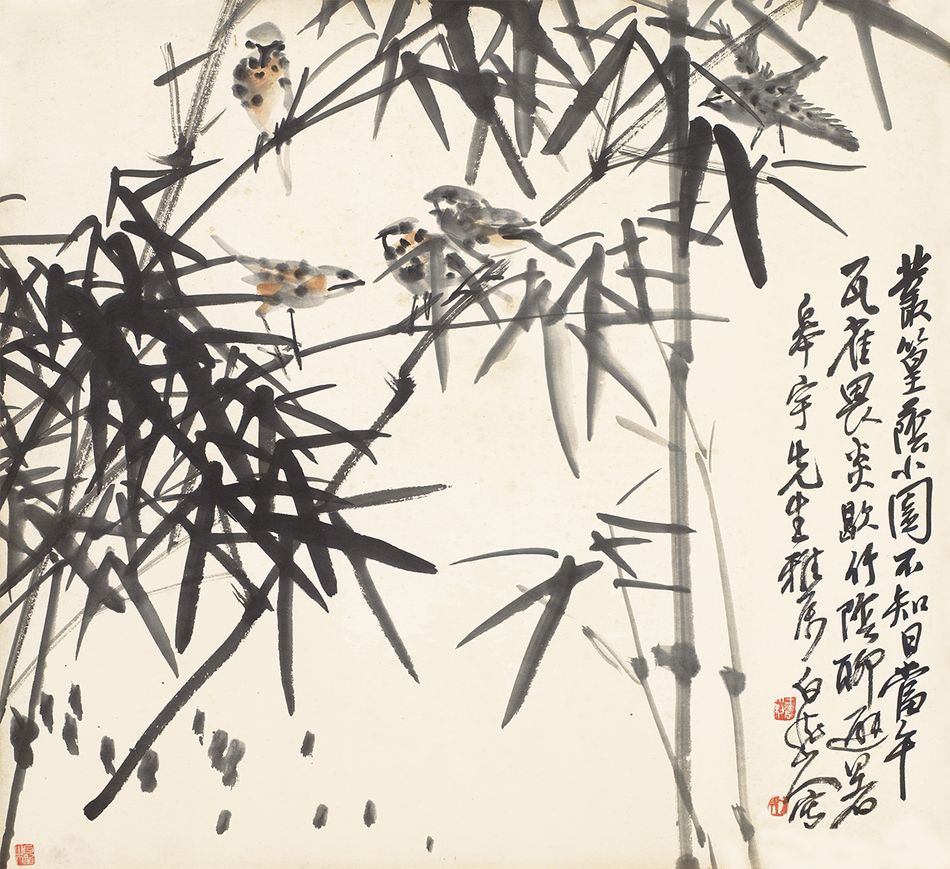 叢篁蔭小園不知日當午
瓦雀畏炎歊竹陰聊避暑
皋宇先生雅屬白龍山人寫